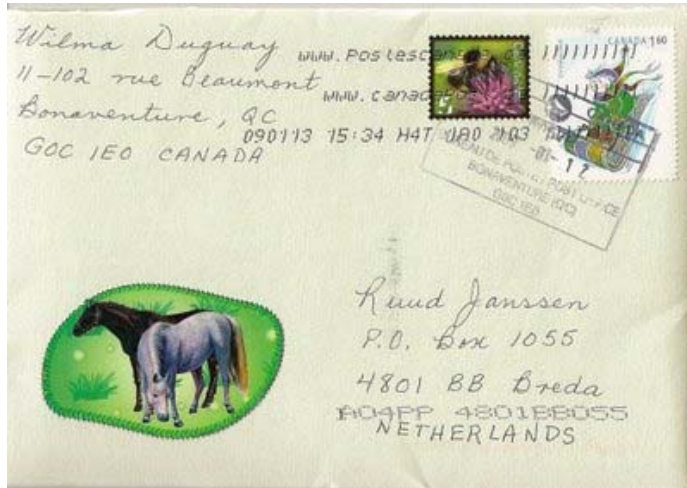 Wilma Duguay
11-102 rue Beaumont
Bonaventure, QC
G0C 1E0 CANADA
www.postescan
www.canada
090113 15:34 H4T 1A0 2103
CANADA 1.60
POST OFFICE
BONAVENTURE (QC)
G0C 1E0
Ruud Janssen
P.O. Box 1055
4801 BB Breda
A04PP 4801BB055
NETHERLANDS